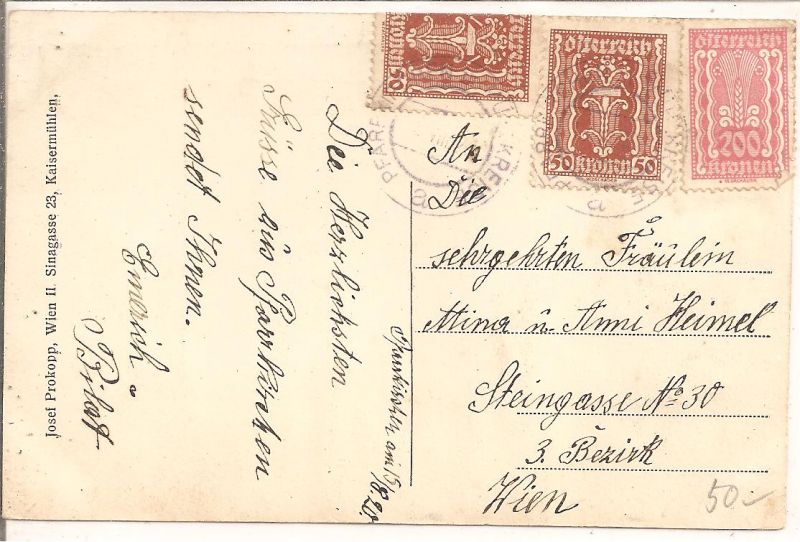 Josef Prokopp, Wien II. Sinagasse 23, Kaisermühlen.
Die Herzlichsten
Grüsse aus Pfarrkirchen
sendet Ihnen.
Emerich
50 Kronen
Österreich
50 Kronen 50
Österreich
200
Kronen
An
Die
sehrgehrten Fräulein
Mina u. Anni Heimel
Steingasse No 30
3. Bezirk
Wien
50-